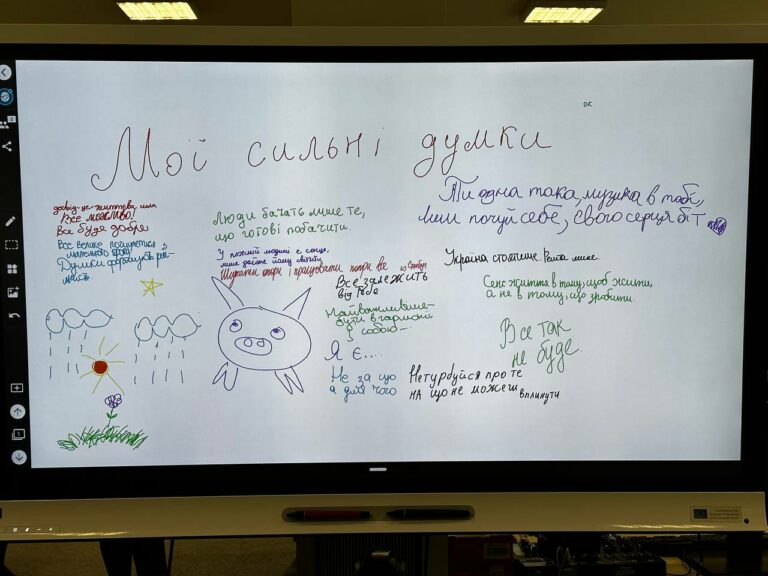 ок
Мої сильні думки
Ти одна така, музика в тобі,
лиш почуй себе, свого серця біт
досвід-це-життєва сила
Все можливо!
Все буде добре
Все велике починається
маленького кроку
Думки формують
Люди бачать лише те,
що готові побачити.
У кожній людині є сонце,
лише дайте йому світити
Шукати опори і працювати попри все
Все залежить
від тебе
Найважливіше-
бути в гармонії
з собою
Я є....
Не за що
а для чого
Не турбуйся про те
на що не можеш вплинути
Україна столиця
Сенс життя в тому, щоб жити,
а не в тому, що зробити.
Все так
не буде